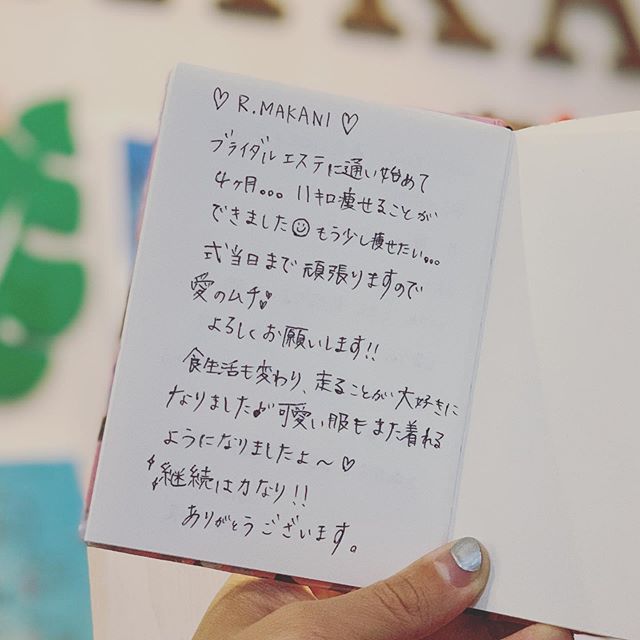 ♡ R.MAKANI ♡
ブライダルエステに通い始めて
4ヶ月。。。11キロ痩せることが
できました☺もう少し痩せたい。。。
式当日まで頑張りますので
愛のムチ
よろしくお願いします!!
食生活も変わり、走ることが大好きに
なりました♪可愛い服もまた着れる
ようになりましたよ〜♡
継続は力なり!!
ありがとうございます。